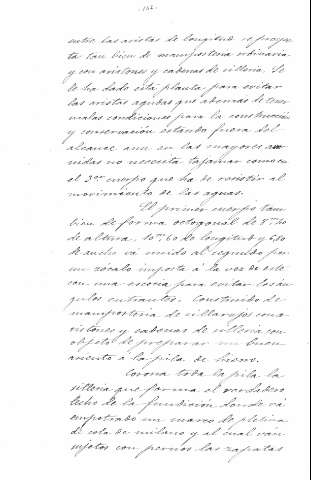 -102-
entre las aristas de longitud se proyec-
ta tan bien de mamposteria ordinaria
y con aristones y cadenas de silleria. Se
le ha dado esta planta para evitar
las aristas agudas que ademas de tener
malas condiciones para la construccion
y conservación estando fuera del
alcance aun en las mayores
nidas no necesita tajamar como en
el 3er cuerpo que ha de resistir al
movimiento de las aguas.
El primer cuerpo tam-
bien de forma octogonal de
de altura, 10m,60 de longitud y
de ancho va unido al segundo por
un zócalo imposta á la vez de este
con una escocia para evitar los án-
gulos entrantes. Construido de
mamposteria de sillarejos con a-
ristones y cadenas de silleria con
objeto de preparar un buen
asiento á la pila de hierro.
Corona toda la pila la
silleria que forma el verdadero
lecho de la fundición donde vá
empotrado un marco de pletina
de cola de milano y al cual van
sujetos con pernos las zapatas